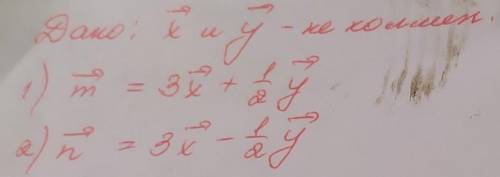 Дано: x⃗ и y⃗ - не коллин.
1) m⃗ = 3x⃗ + 1/2 y⃗
2) n⃗ = 3x⃗ - 1/2 y⃗